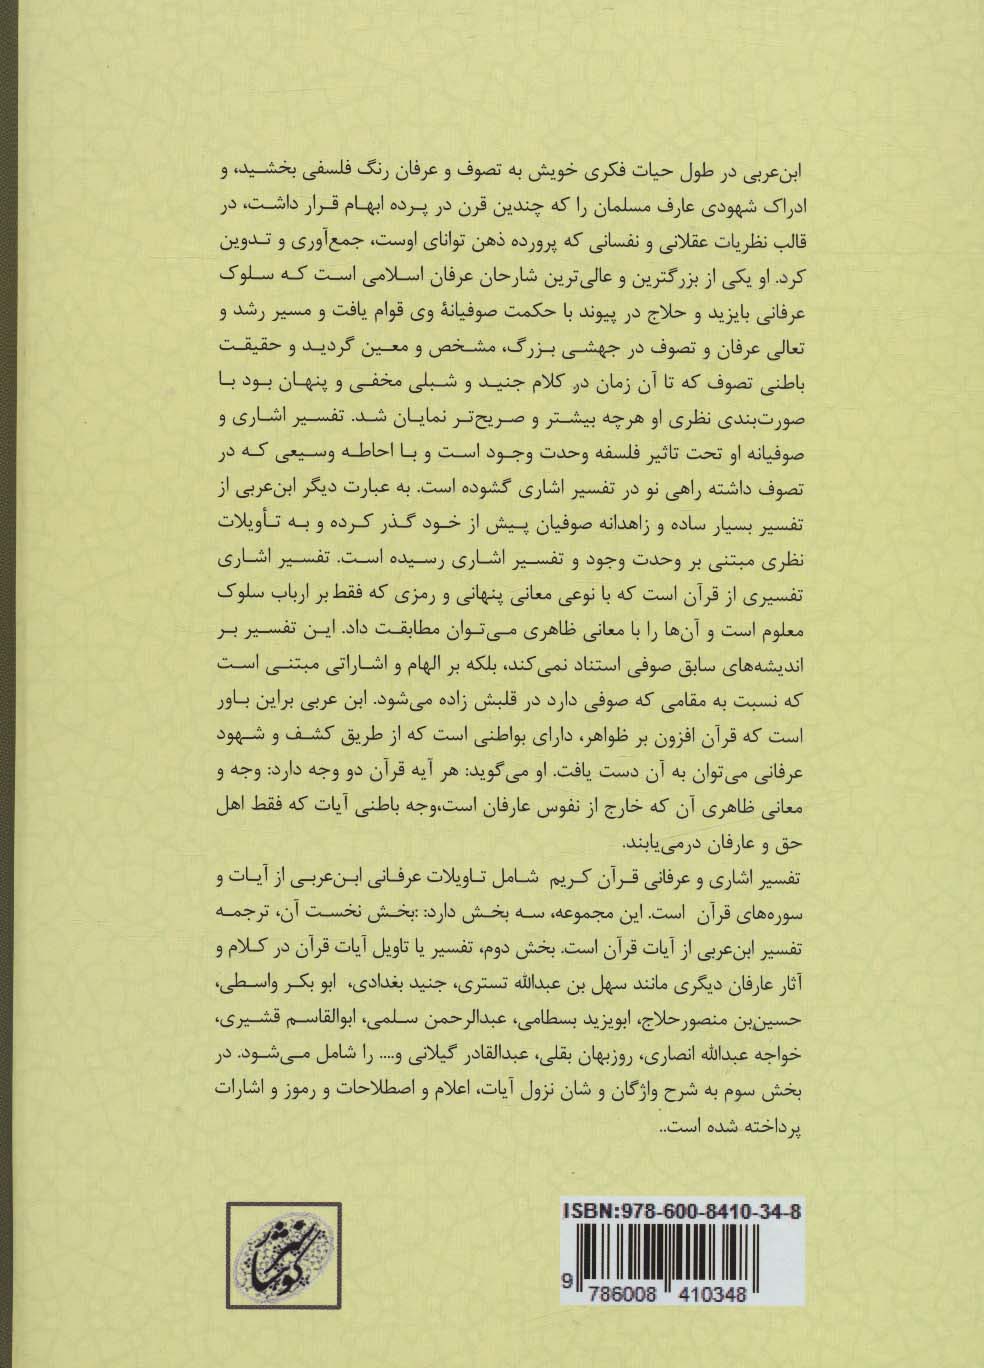 ابن‌عربی در طول حیات فکری خویش به تصوف و عرفان رنگ فلسفی بخشید، و
ادراک شهودی عارف مسلمان را که چندین قرن در پرده ابهام قرار داشت، در
قالب نظریات عقلانی و نفسانی که پرورده ذهن توانای اوست، جمع‌آوری و تدوین
کرد. او یکی از بزرگترین و عالی‌ترین شارحان عرفان اسلامی است که سلوک
عرفانی بایزید و حلاج در پیوند با حکمت صوفیانهٔ وی قوام یافت و مسیر رشد و
تعالی عرفان و تصوف در جهشی بزرگ، مشخص و معین گردید و حقیقت
باطنی تصوف که تا آن زمان در کلام جنید و شبلی مخفی و پنهان بود با
صورت‌بندی نظری او هرچه بیشتر و صریح‌تر نمایان شد. تفسیر اشاری و
صوفیانه او تحت تاثیر فلسفه وحدت وجود است و با احاطه وسیعی که در
تصوف داشته راهی نو در تفسیر اشاری گشوده است. به عبارت دیگر ابن‌عربی از
تفسیر بسیار ساده و زاهدانه صوفیان پیش از خود گذر کرده و به تأویلات
نظری مبتنی بر وحدت وجود و تفسیر اشاری رسیده است. تفسیر اشاری
تفسیری از قرآن است که با نوعی معانی پنهانی و رمزی که فقط بر ارباب سلوک
معلوم است و آن‌ها را با معانی ظاهری می‌توان مطابقت داد. این تفسیر بر
اندیشه‌های سابق صوفی استناد نمی‌کند، بلکه بر الهام و اشاراتی مبتنی است
که نسبت به مقامی که صوفی دارد در قلبش زاده می‌شود. ابن عربی براین باور
است که قرآن افزون بر ظواهر، دارای بواطنی است که از طریق کشف و شهود
عرفانی می‌توان به آن دست یافت. او می‌گوید: هر آیه قرآن دو وجه دارد: وجه و
معانی ظاهری آن که خارج از نفوس عارفان است،وجه باطنی آیات که فقط اهل
حق و عارفان درمی‌یابند.
تفسیر اشاری و عرفانی قرآن کریم شامل تاویلات عرفانی ابن‌عربی از آیات و
سوره‌های قرآن است. این مجموعه، سه بخش دارد: :بخش نخست آن، ترجمه
تفسیر ابن‌عربی از آیات قرآن است. بخش دوم، تفسیر یا تاویل آیات قرآن در کلام و
آثار عارفان دیگری مانند سهل بن عبدالله تستری، جنید بغدادی، ابو بکر واسطی،
حسین‌بن منصورحلاج، ابویزید بسطامی، عبدالرحمن سلمی، ابوالقاسم قشیری،
خواجه عبدالله انصاری، روزبهان بقلی، عبدالقادر گیلانی و.... را شامل می‌شود. در
بخش سوم به شرح واژگان و شان نزول آیات، اعلام و اصطلاحات و رموز و اشارات
پرداخته شده است..
ISBN:978-600-8410-34-8
9 786008 410348
نشر
گویا